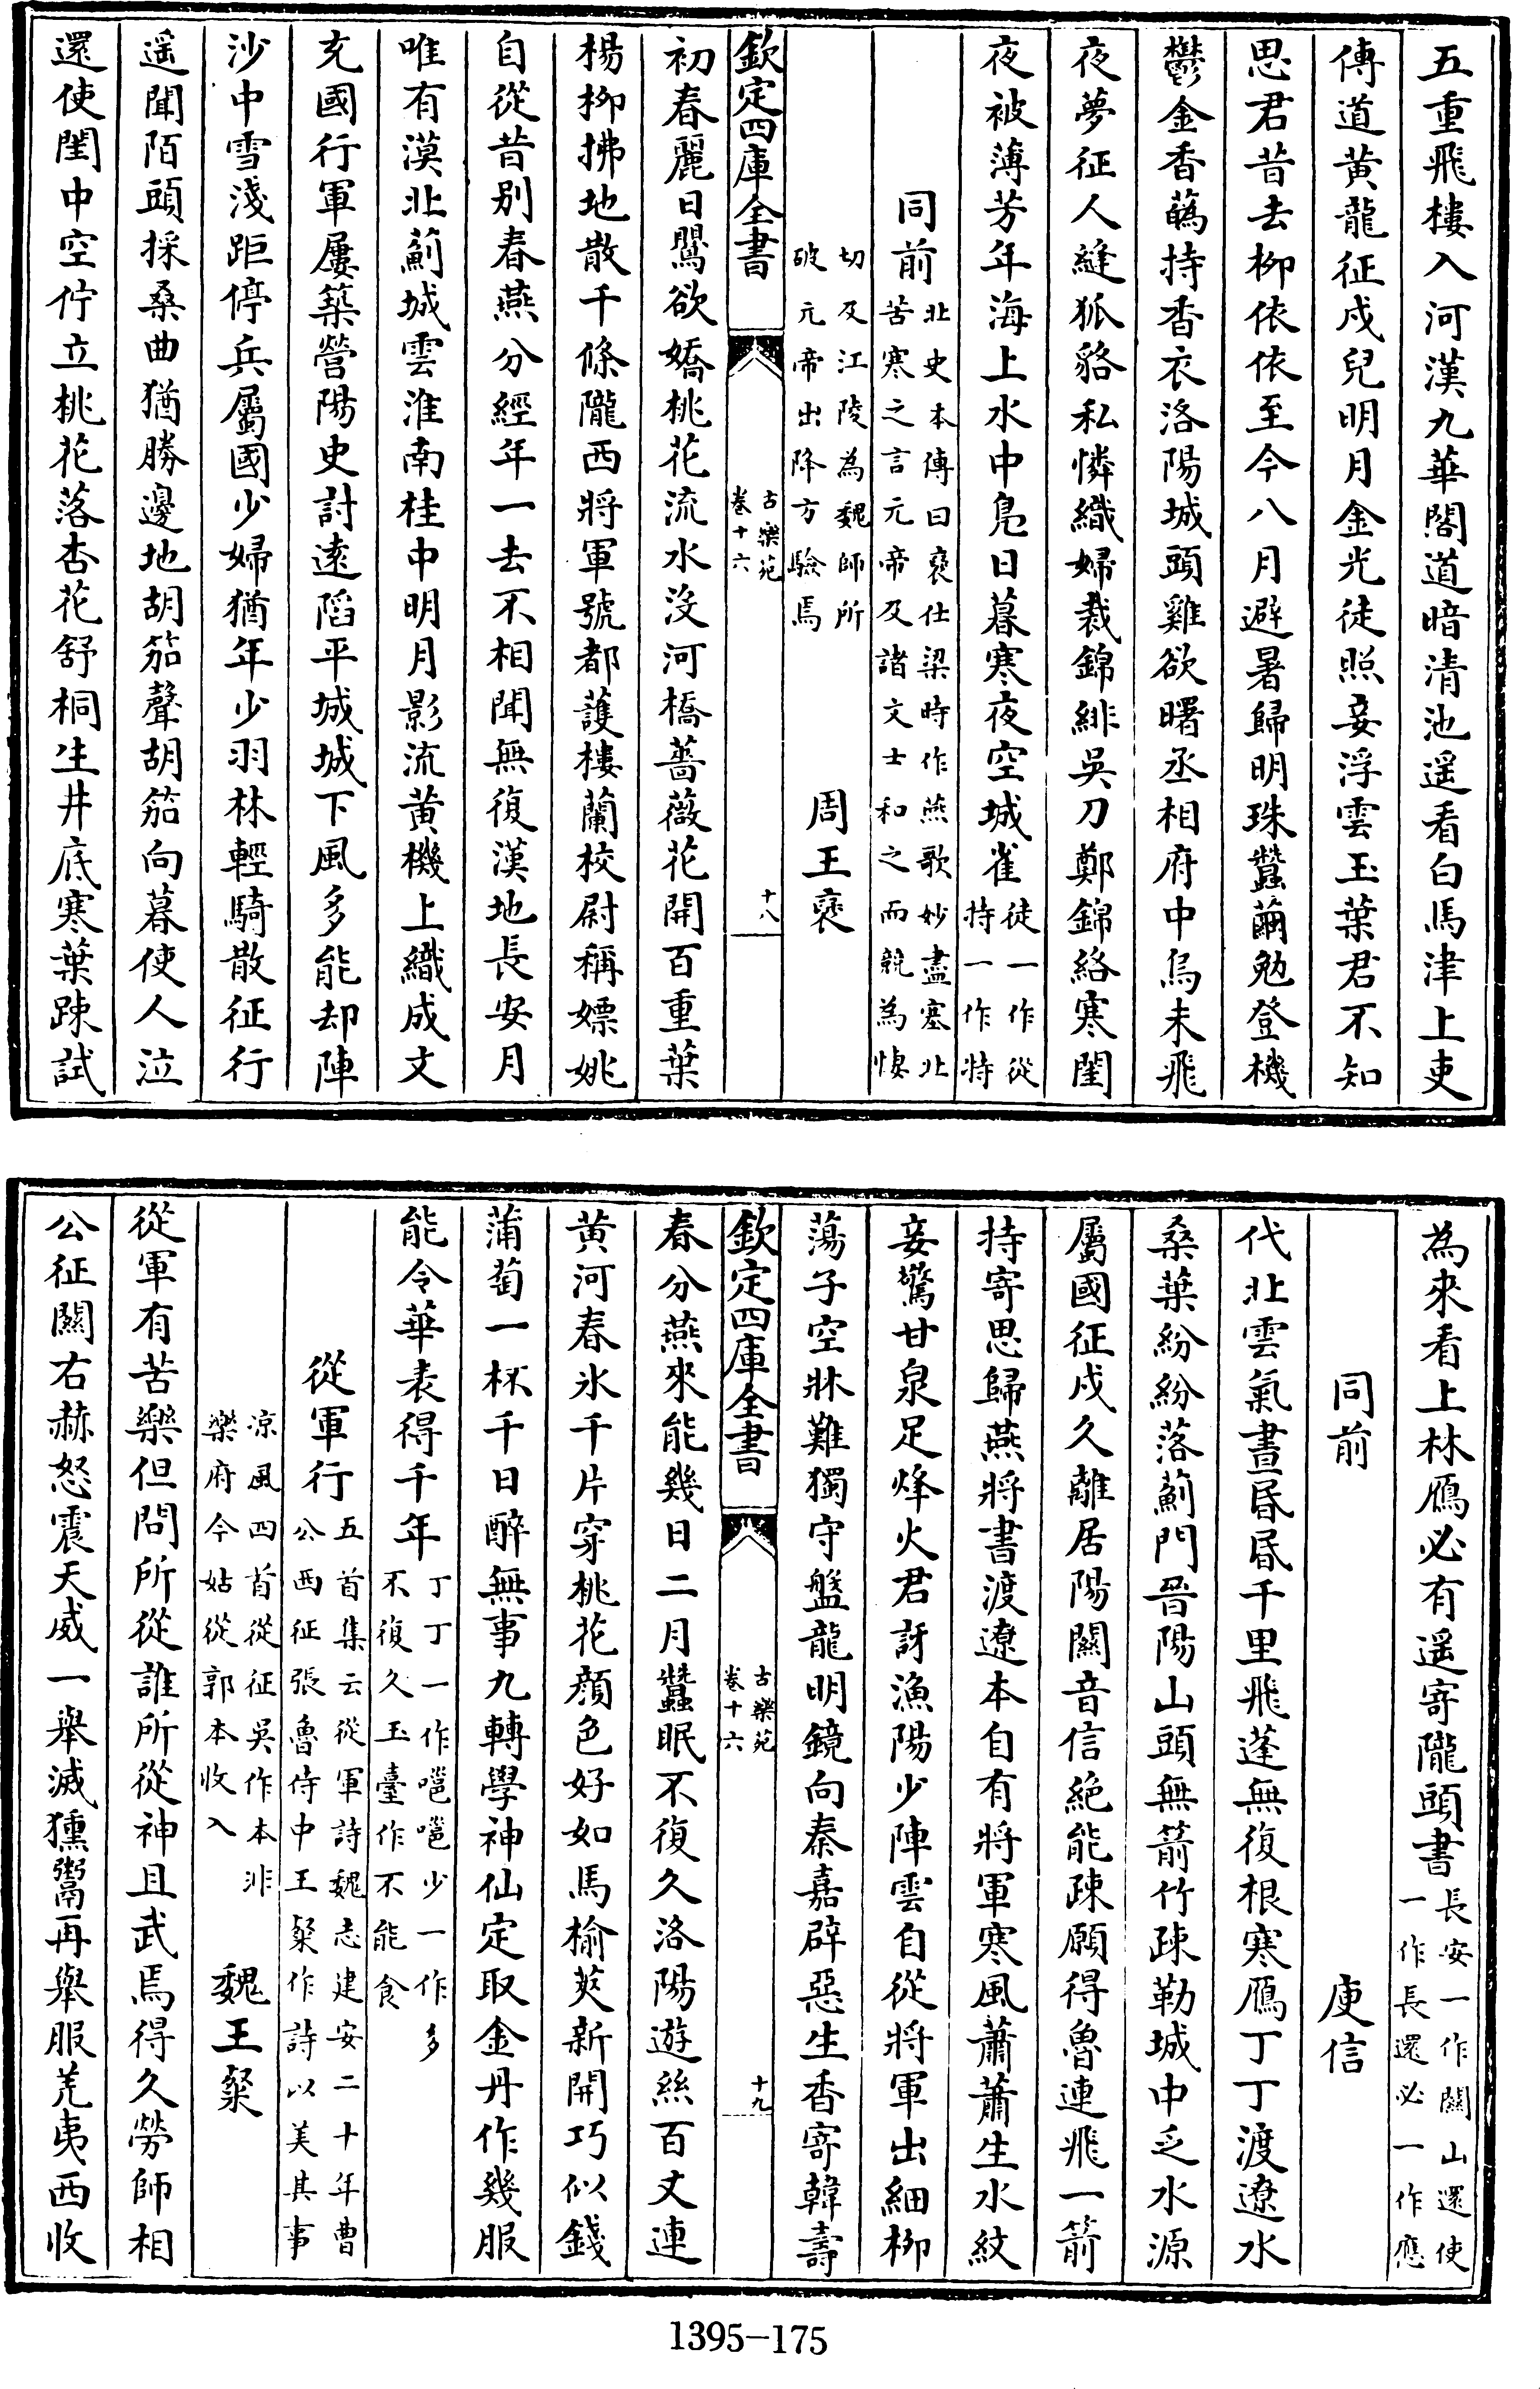 五重飛樓入河漢九華閣道暗清池遥看白馬津上吏
傳道黄龍征戍兒明月金光徒照妾浮雲玉葉君不知
思君昔去柳依依至今八月避暑歸明珠蠶繭勉登機
鬱金香蘤持香衣洛陽城頭雞欲曙丞相府中烏未飛
夜夢征人縫狐貉私憐織婦裁錦緋吳刀鄭錦絡寒閨
夜被薄芳年海上水中鳬日暮寒夜空城雀徒一作從
持一作特
同前北史本傳曰襃仕梁時作燕歌妙盡塞北
苦寒之言元帝及諸文士和之而競為悽
切及江陵為魏師所
破元帝出降方驗焉
周王襃
欽定四庫全書
古樂苑
卷十六
十八
初春麗日鸎欲嬌桃花流水没河橋薔薇花開百重葉
楊柳拂地散千條隴西將軍號都護樓蘭校尉稱嫖姚
自從昔别春燕分經年一去不相聞無復漢地長安月
唯有漠北薊城雲淮南桂中明月影流黄機上織成文
充國行軍屢築營陽史討逺䧟平城城下風多能却陣
沙中雪淺距停兵屬國少婦猶年少羽林輕騎散征行
遥聞陌頭採桑曲猶勝邊地胡笳聲胡笳向暮使人泣
還使閨中空佇立桃花落杏花舒桐生井底寒葉踈試
為來看上林鴈必有遥寄隴頭書長安一作關山還使
一作長還必一作應
同前
庾信
代北雲氣晝昏昏千里飛蓬無復根寒鴈丁丁渡遼水
桑葉紛紛落薊門晉陽山頭無箭竹踈勒城中乏水源
屬國征戍久離居陽關音信絶能踈願得魯連飛一箭
持寄思歸燕將書渡遼本自有將軍寒風蕭蕭生水紋
妾驚甘泉足烽火君訝漁陽少陣雲自從將軍出細柳
蕩子空牀難獨守盤龍明鏡向秦嘉辟惡生香寄韓壽
欽定四庫全書
古樂苑
卷十六
十九
春分燕來能幾日二月蠶眠不復久洛陽遊絲百丈連
黄河春氷千片穿桃花顔色好如馬榆莢新開巧似錢
蒲萄一杯千日醉無事九轉學神仙定取金丹作幾服
能令華表得千年丁丁一作嗈嗈少一作多
不復久玉臺作不能食
從軍行五首集云從軍詩魏志建安二十年曹
公西征張魯侍中王粲作詩以美其事
凉風四首從征吳作本非
樂府今姑從郭本收入
魏王粲
從軍有苦樂但問所從誰所從神且武焉得久勞師相
公征關右赫怒震天威一舉滅獯鬻再舉服羌夷西收
1395-175